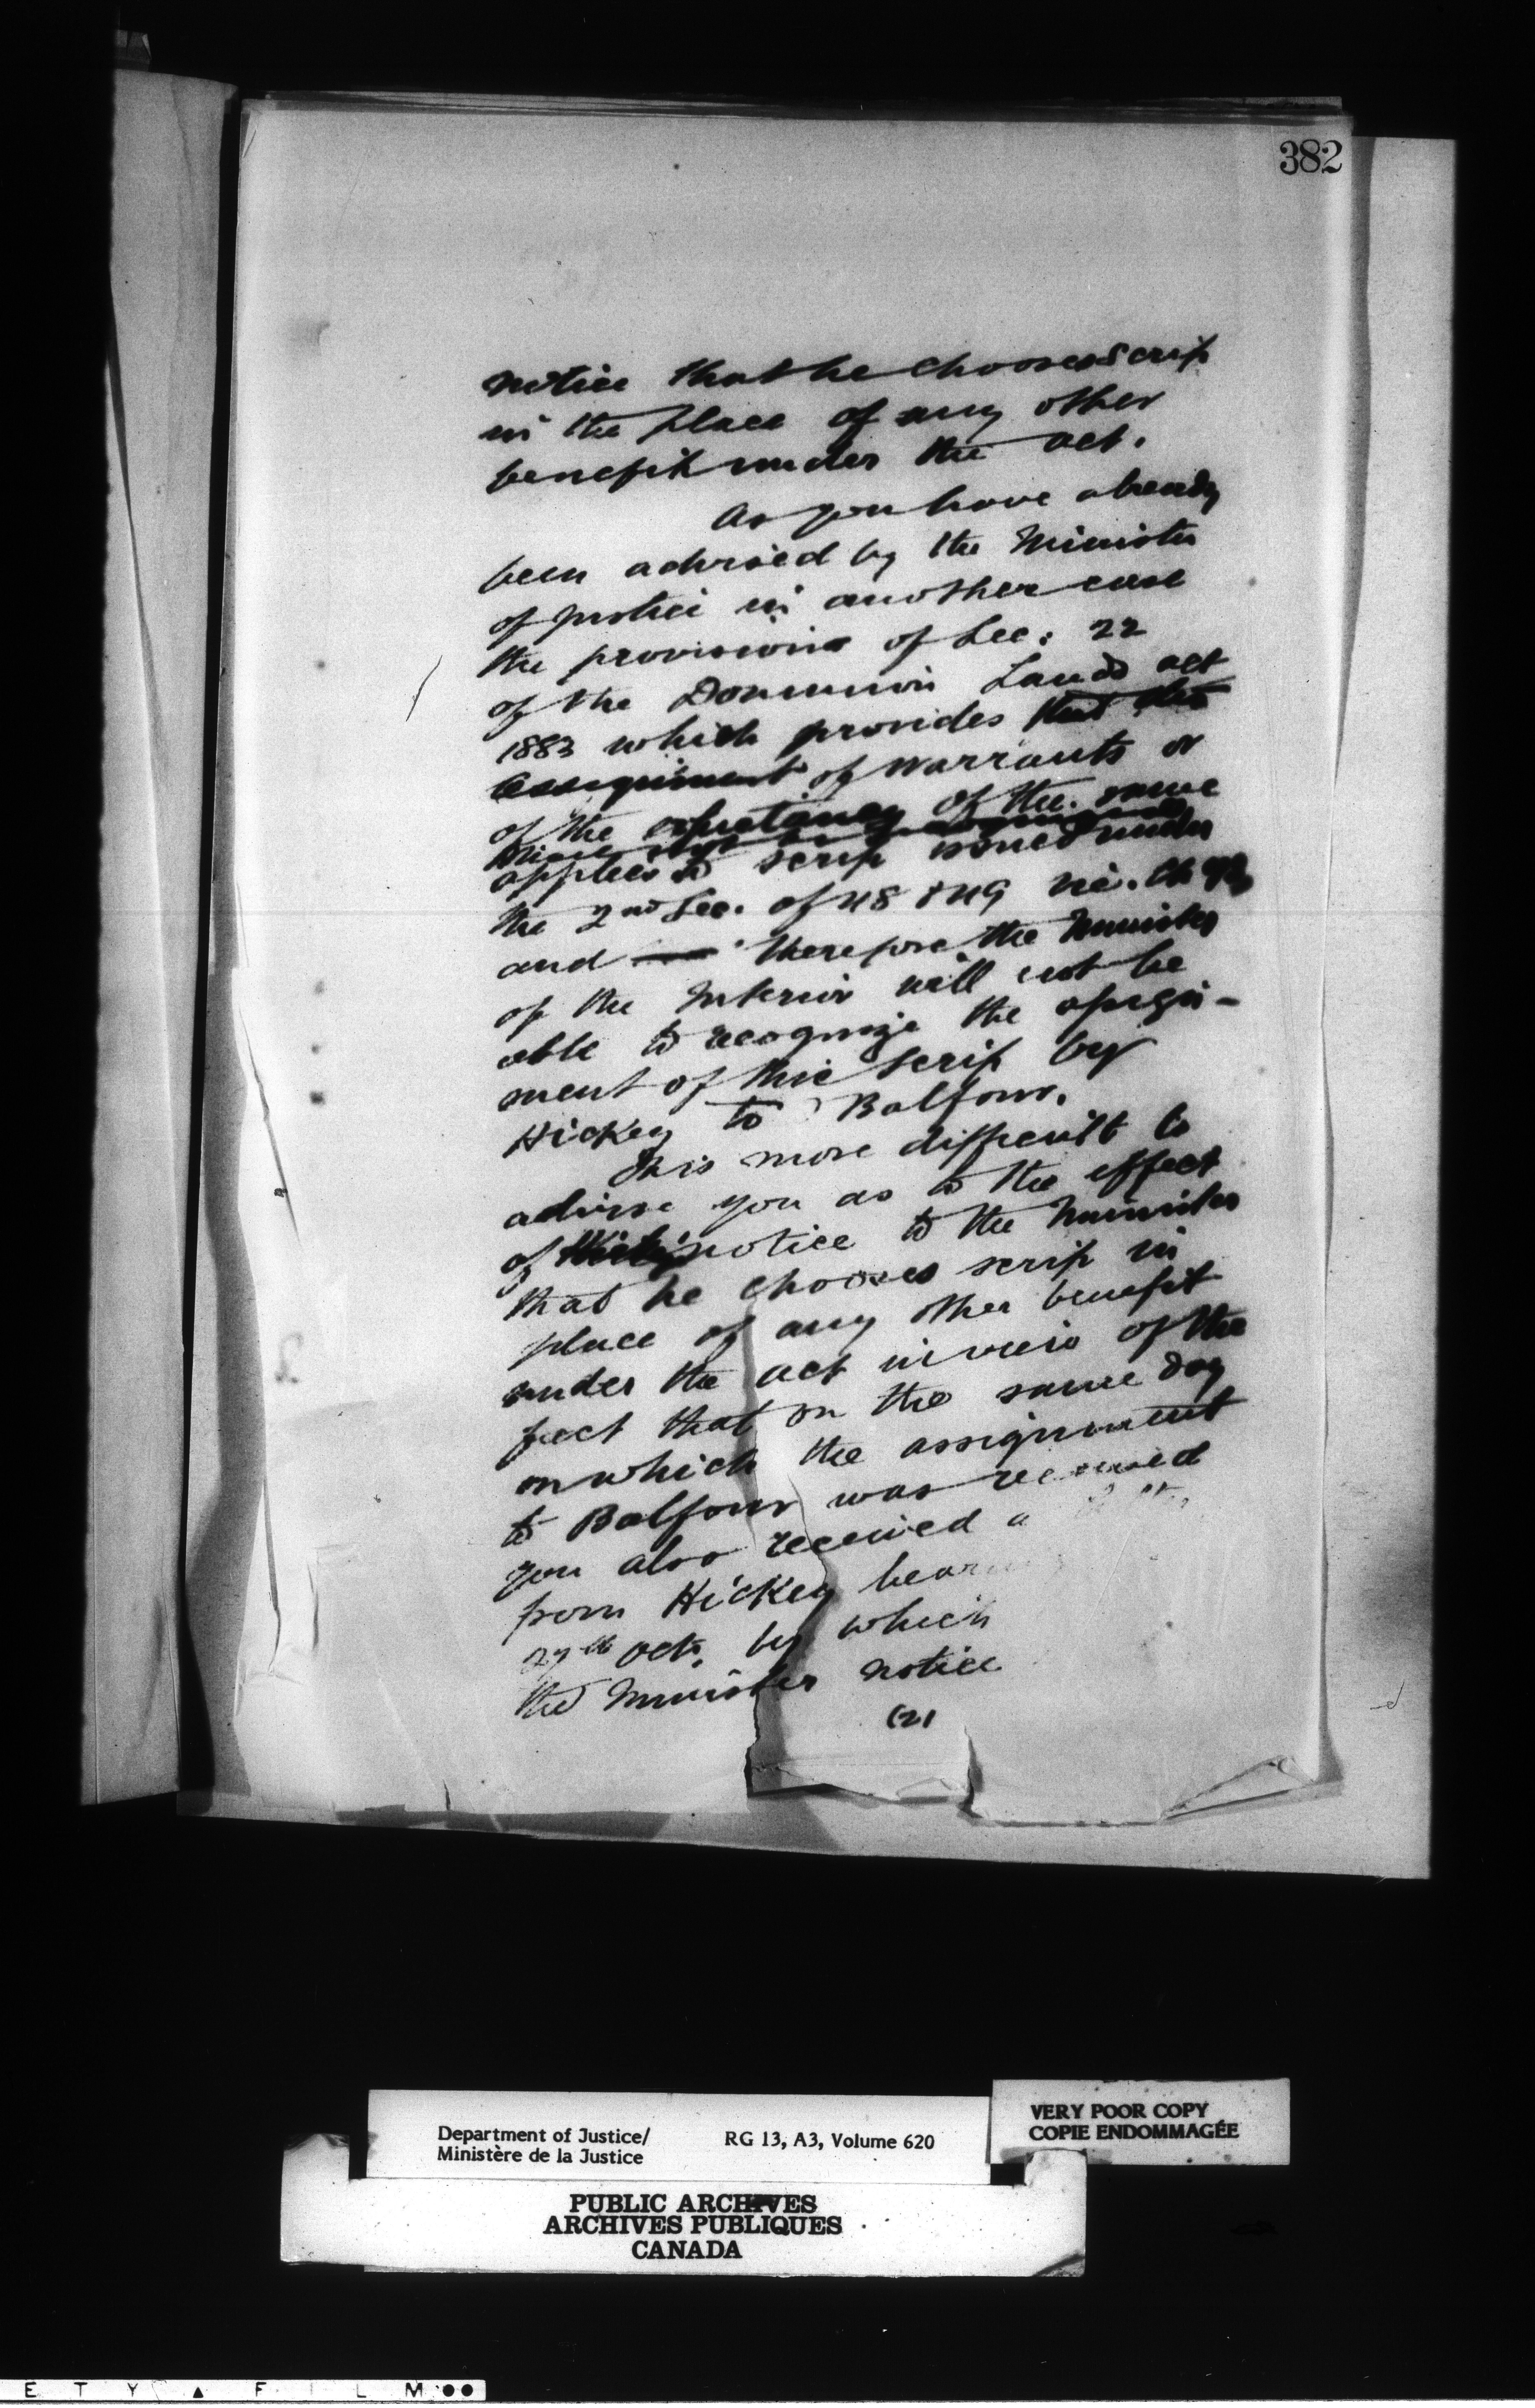 382
notice that he chooses scrip
in the place of any other
benefit under the act.
As you have already
been advised by the Minister
of Justice in another case
the provisions of Sec: 22
of the Dominion Lands act
1883 which provides that the
assignment of warrants or
of the of the same
applies to scrip issued under
the 2nd Sec. of 48 & 49 Vic. Ch
and therefore the Minister
of the Interior will not be
able to recognize the assign-
ment of this scrip by
Hickey to Balfour.
It is more difficult to
advise you as to the effect
of notice to the Minister
that he chooses scrip in
place of any other benefit
under the act in view of the
fact that on the same day
on which the assignment
to Balfour was received
you also received a
from Hickey
27th Oct. by which
the Minister notice
(2)
Department of Justice/
Ministère de la Justice
RG 13, A3, Volume 620
VERY POOR COPY
COPIE ENDOMMAGÉE
PUBLIC ARCHIVES
ARCHIVES PUBLIQUES
CANADA
E T Y ▲ F I L M